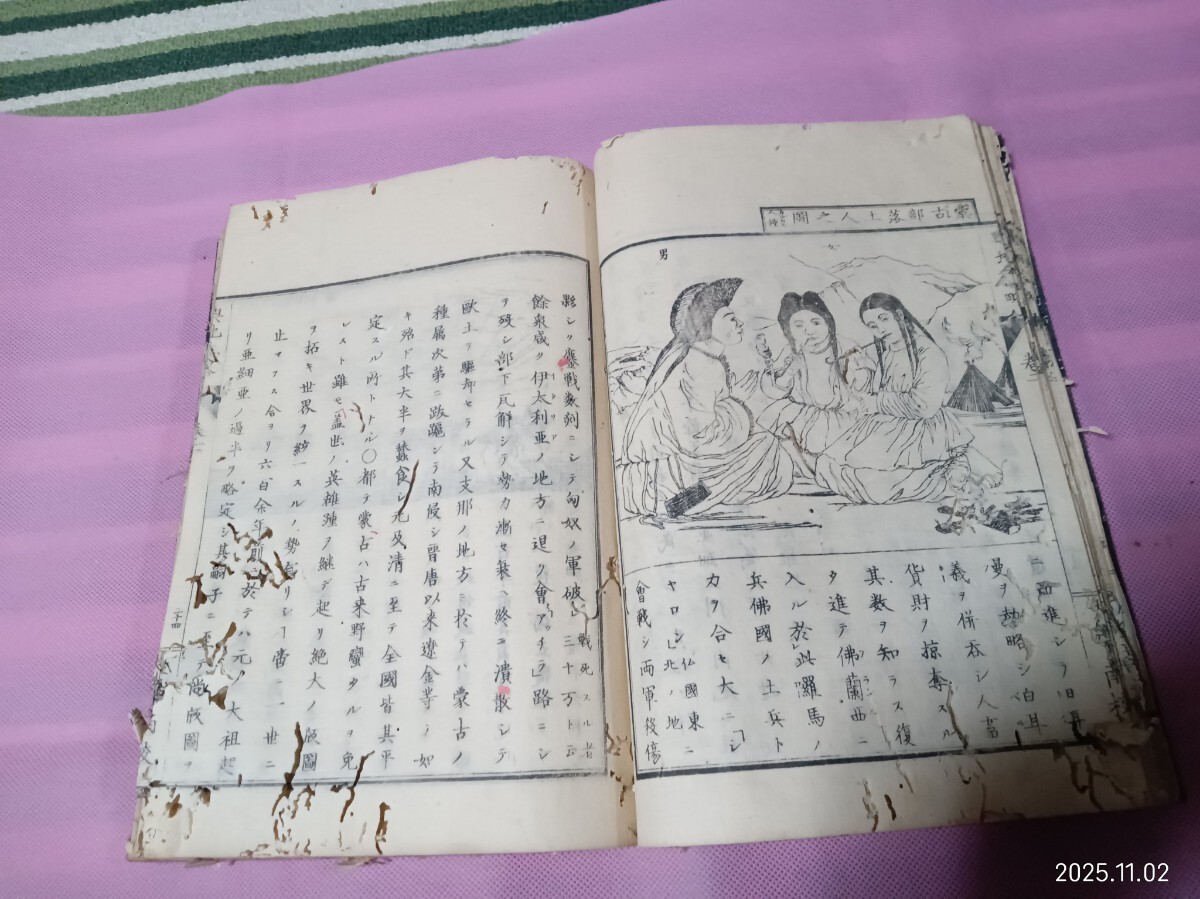 蒙古部落土人之圖
男
女
ニ西進シテ日耳
曼ヲ劫略シ白耳
義ヲ併呑シ人畜
貨財ヲ掠奪スル
其数ヲ知ラス復
タ進テ佛蘭西ニ
入ル於此羅馬ノ
兵佛國ノ土兵ト
力ヲ合セ大ニ「シ
ヤロン」仏國東ニ北ノ地
會戰シ両軍殺傷
影シク鏖戰数刻ニシテ匈奴ノ軍破レ戰死スル者三十万ト云
餘衆咸ク伊太利亜ノ地方ニ退ク會「アチラ」路ニシ
テ殁シ部下瓦解シテ勢力漸セ衰ヘ終ニ潰散シテ
歐土ヲ驅却セラル又支那ノ地方ニ於テハ蒙古ノ
種属次第ニ跋扈シテ南侵シ晋唐以来遼金等ノ如
キ殆ド其大半ヲ蠶食シ元及清ニ至テ全國皆其平
定スル所トナル〇都テ蒙古ハ古来野蠻タルヲ免
レスト雖モ蓋世ノ英雄踵ヲ継デ起リ絶大ノ版圖
ヲ拓キ世界ヲ統一スルノ勢アリシヿ啻ニ一世ニ
止マラス今ヨリ六百余年前ニ於テハ元ノ大祖起
リ亜細亜ノ過半ヲ略定シ其嗣子ニ至テ尚版圖ヲ
二十四
2025.11.02